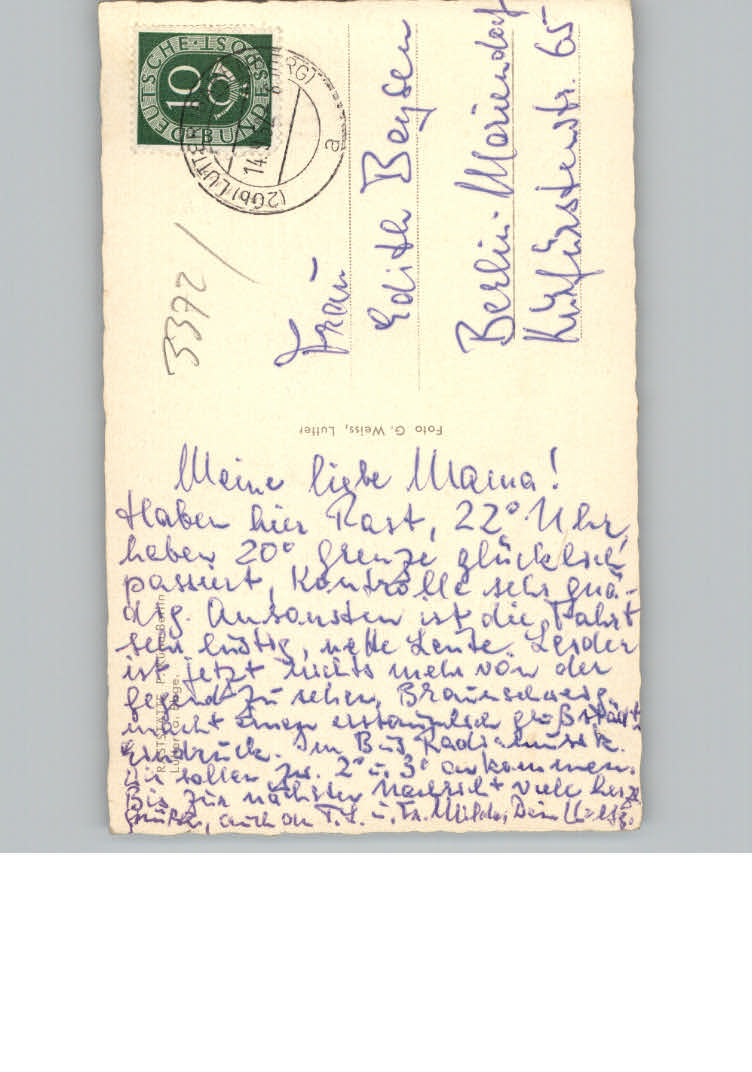 DEUTSCHE BUNDESPOST
10
(20b) LUTTER
14.
a
3372
Frau
Edith Beysen
Berlin-Mariendorf
Kurfürstenstr. 65
Foto G. Weiss, Lutter
RASTSTÄTTE
Lutter a. Bbge.
Meine liebe Mama!
Haben hier Rast, 22° Uhr,
haben 20° Grenze glücklich
passiert, Kontrolle sehr gnä-
dig. Ansonsten ist die Fahrt
sehr lustig, nette Leute. Leider
ist jetzt nichts mehr von der
Gegend zu sehen, Braunschweig
macht einen erstaunlich großstädt.
Eindruck. Im Bus Radiomusik.
Wir sollen zw. 2° u. 3° ankommen.
Bis zur nächsten Nachricht viele herzl.
Grüße, auch an T. L. u. Fr. Milde, Dein